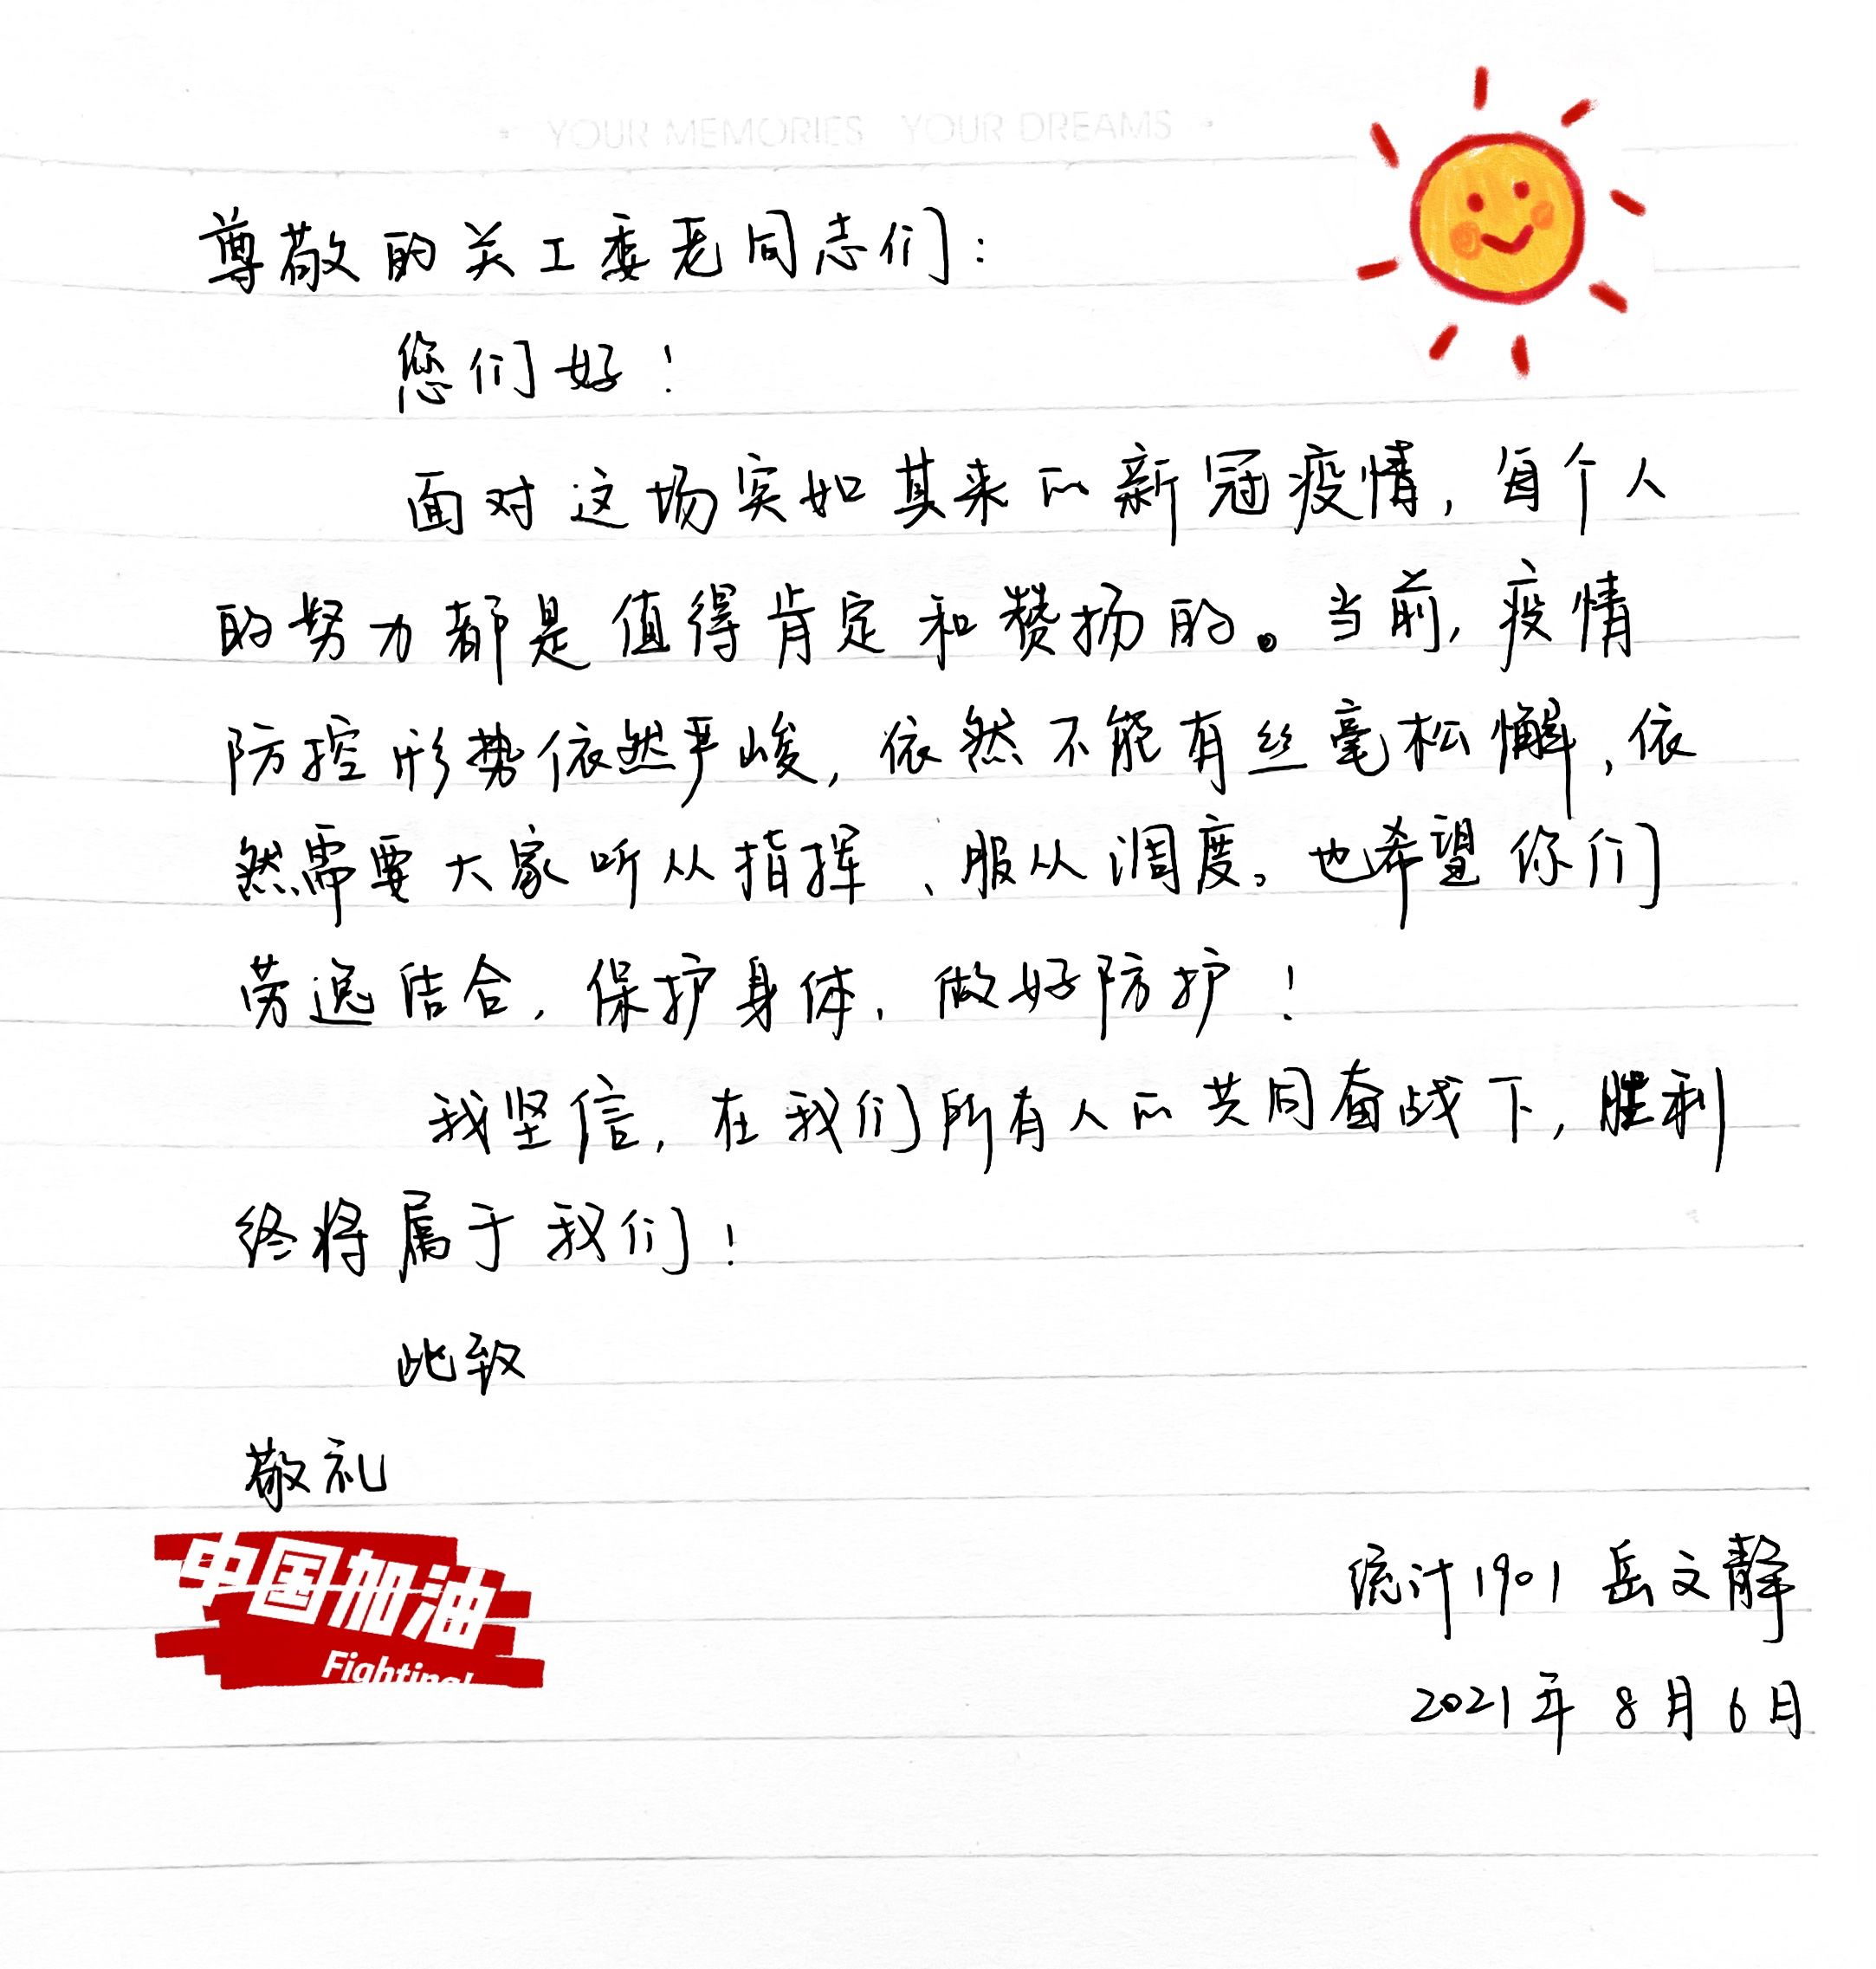 YOUR MEMORIES YOUR DREAMS
尊敬的关工委老同志们：
您们好！
面对这场突如其来的新冠疫情，每个人
的努力都是值得肯定和赞扬的。当前，疫情
防控形势依然严峻，依然不能有丝毫松懈，依
然需要大家听从指挥、服从调度。也希望你们
劳逸结合，保护身体，做好防护！
我坚信，在我们所有人的共同奋战下，胜利
终将属于我们！
此致
敬礼
中国加油
Fighting!
统计1901 岳文静
2021年8月6日